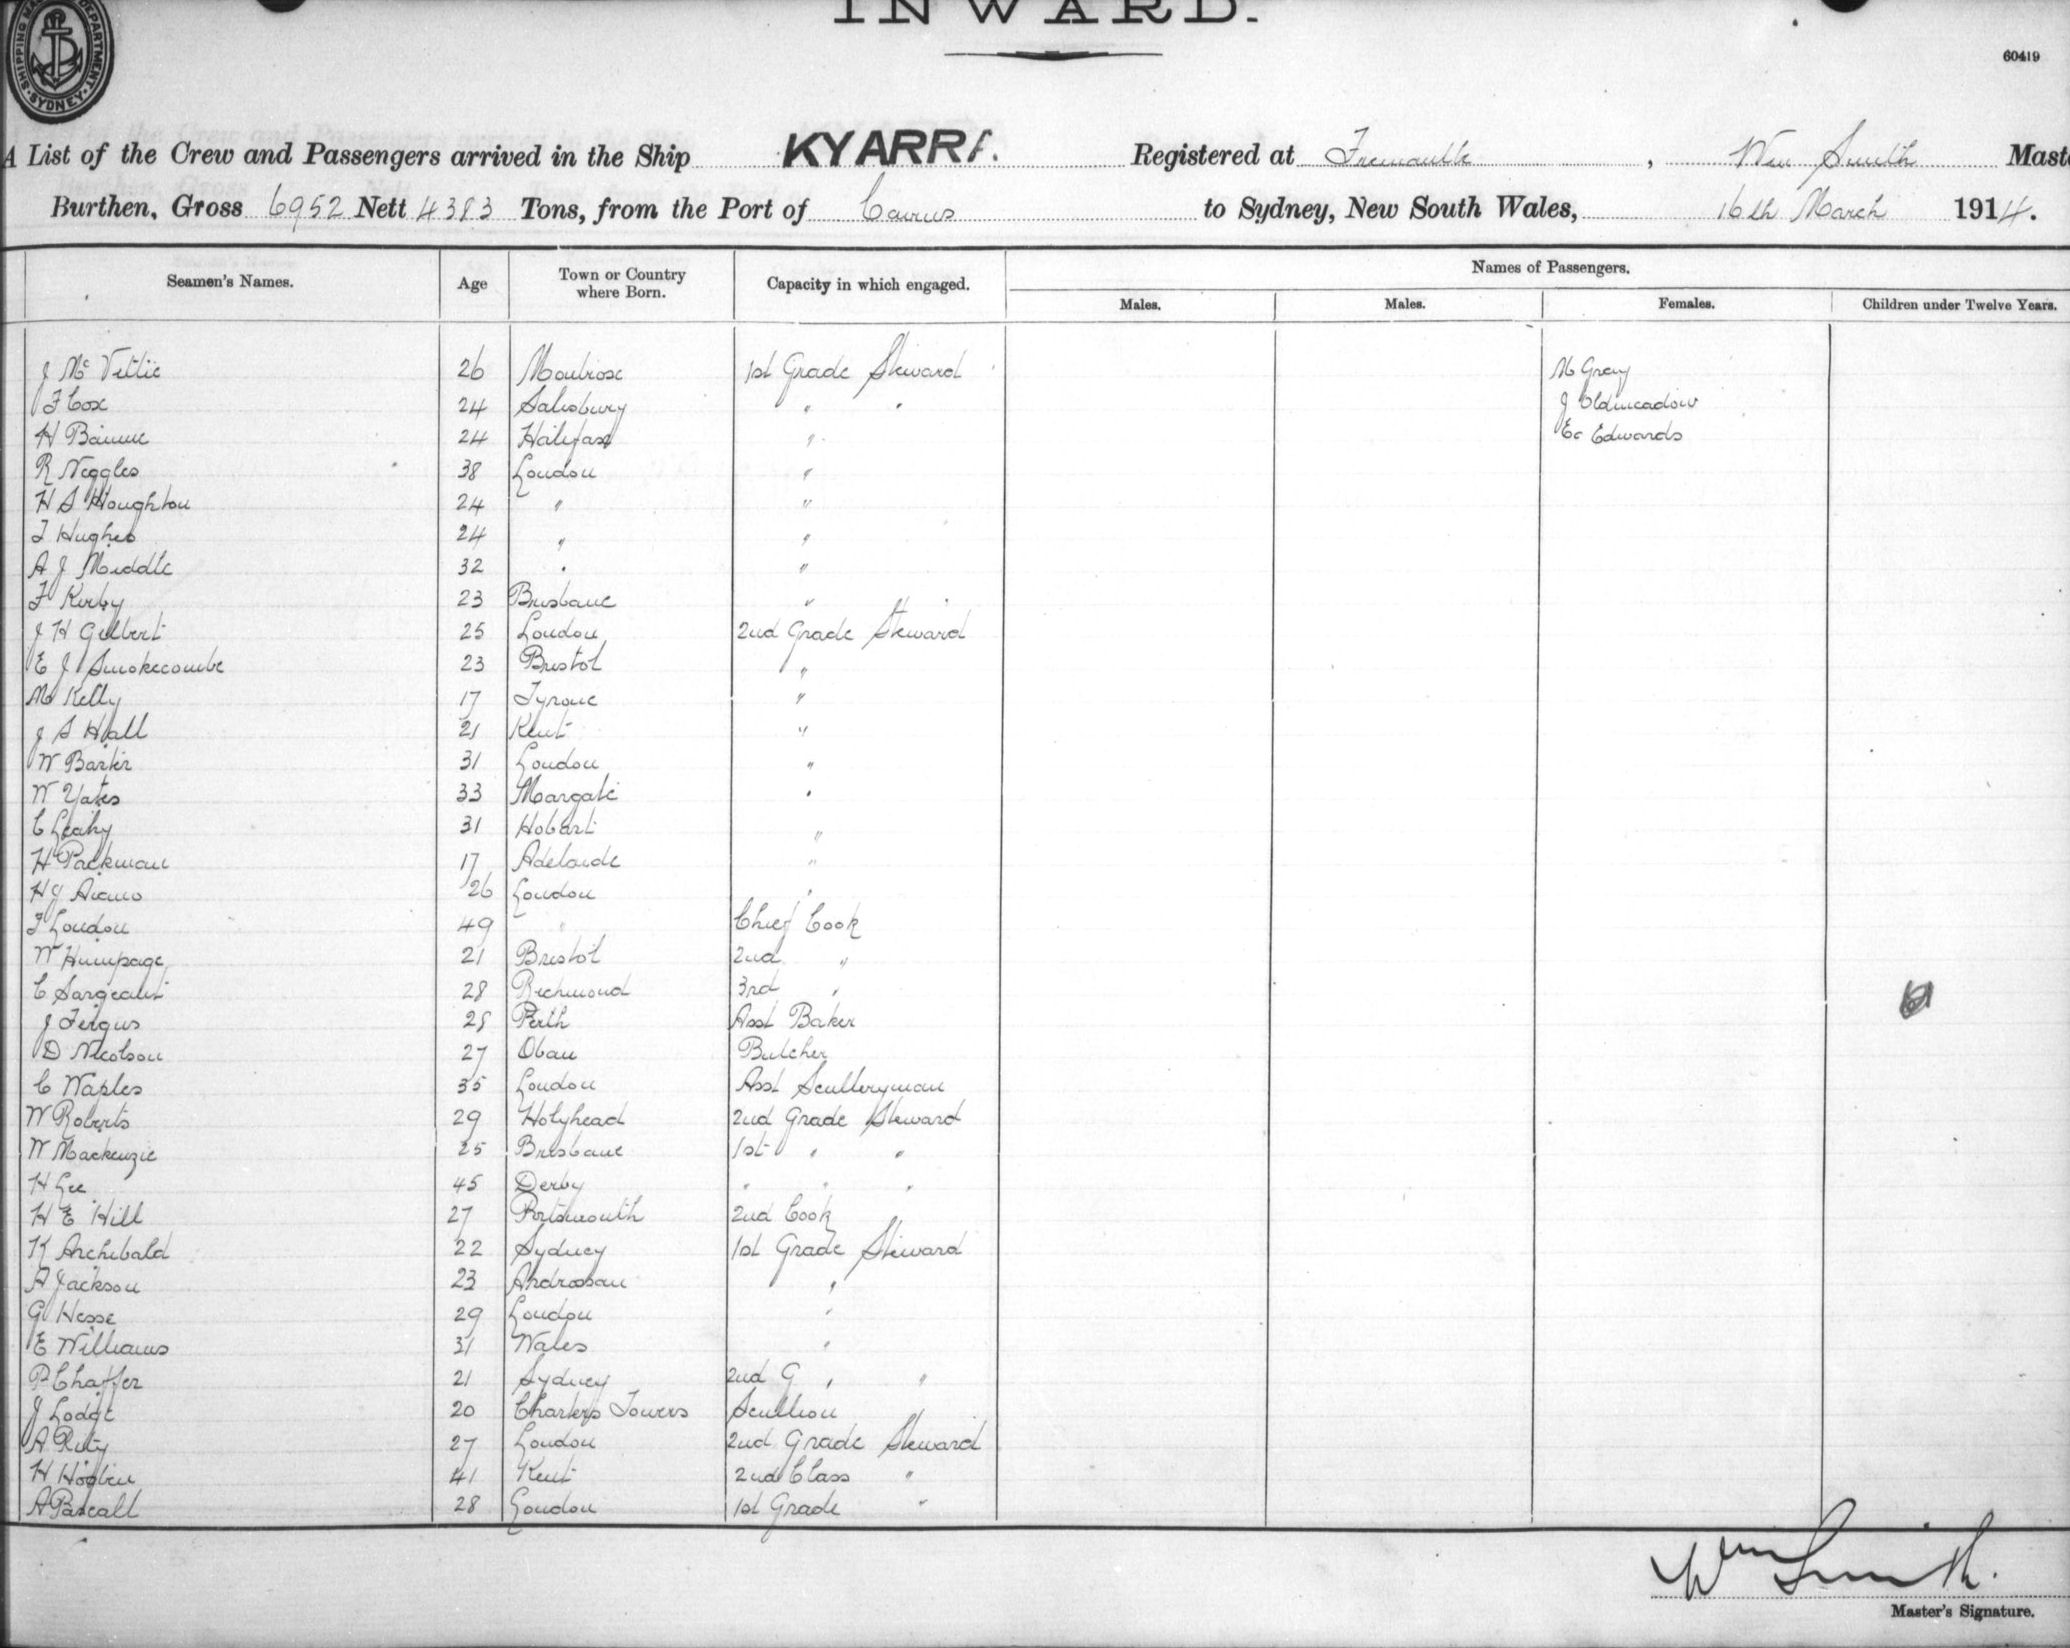 INWARD.
SHIPPING DEPARTMENT SYDNEY
60419
A List of the Crew and Passengers arrived in the Ship KYARRA. Registered at Fremantle, Wm Smith Maste
Burthen, Gross 6952 Nett 4383 Tons, from the Port of Cairns to Sydney, New South Wales, 16th March 1914.
Names of Passengers.
Seamen's Names. Age Town or Country where Born. Capacity in which engaged. Males. Males. Females. Children under Twelve Years.
J McVittie 26 Montrose 1st Grade Steward M Gray
F Cox 24 Salisbury " " J Oldmeadow
H 24 Halifax " Ec Edwards
R Neggles 38 London "
H S Houghton 24 " "
T Hughes 24 " "
A J Middle 32 " "
F Kirby 23 Brisbane "
J H Gilbert 25 London 2nd Grade Steward
E J Smokecombe 23 Bristol "
M Kelly 17 Tyrone "
J S Hall 21 Kent "
W Barter 31 London "
W Yates 33 Margate "
C Leahy 31 Hobart "
H Packman 17 Adelaide "
H J 26 London "
F London 49 " Chief Cook
W Humpage 21 Bristol 2nd "
C Sargeant 28 Richmond 3rd "
J Fergus 28 Perth Asst Baker
D Nicolson 27 Oban Butcher
C Waples 35 London Asst Sculleryman
W Roberts 29 Holyhead 2nd Grade Steward
W Mackenzie 25 Brisbane 1st " "
H Lee 45 Derby " " "
H E Hill 27 Portsmouth 2nd Cook
K Archibald 22 Sydney 1st Grade Steward
A Jackson 23 Androssan "
G Hesse 29 London "
E Williams 31 Wales "
P Chaffer 21 Sydney 2nd G " "
J Lodge 20 Charters Towers Scullion
A 27 London 2nd Grade Steward
H Hogben 41 Kent 2nd Class "
A Pascall 28 London 1st Grade "
Wm Smith.
Master's Signature.